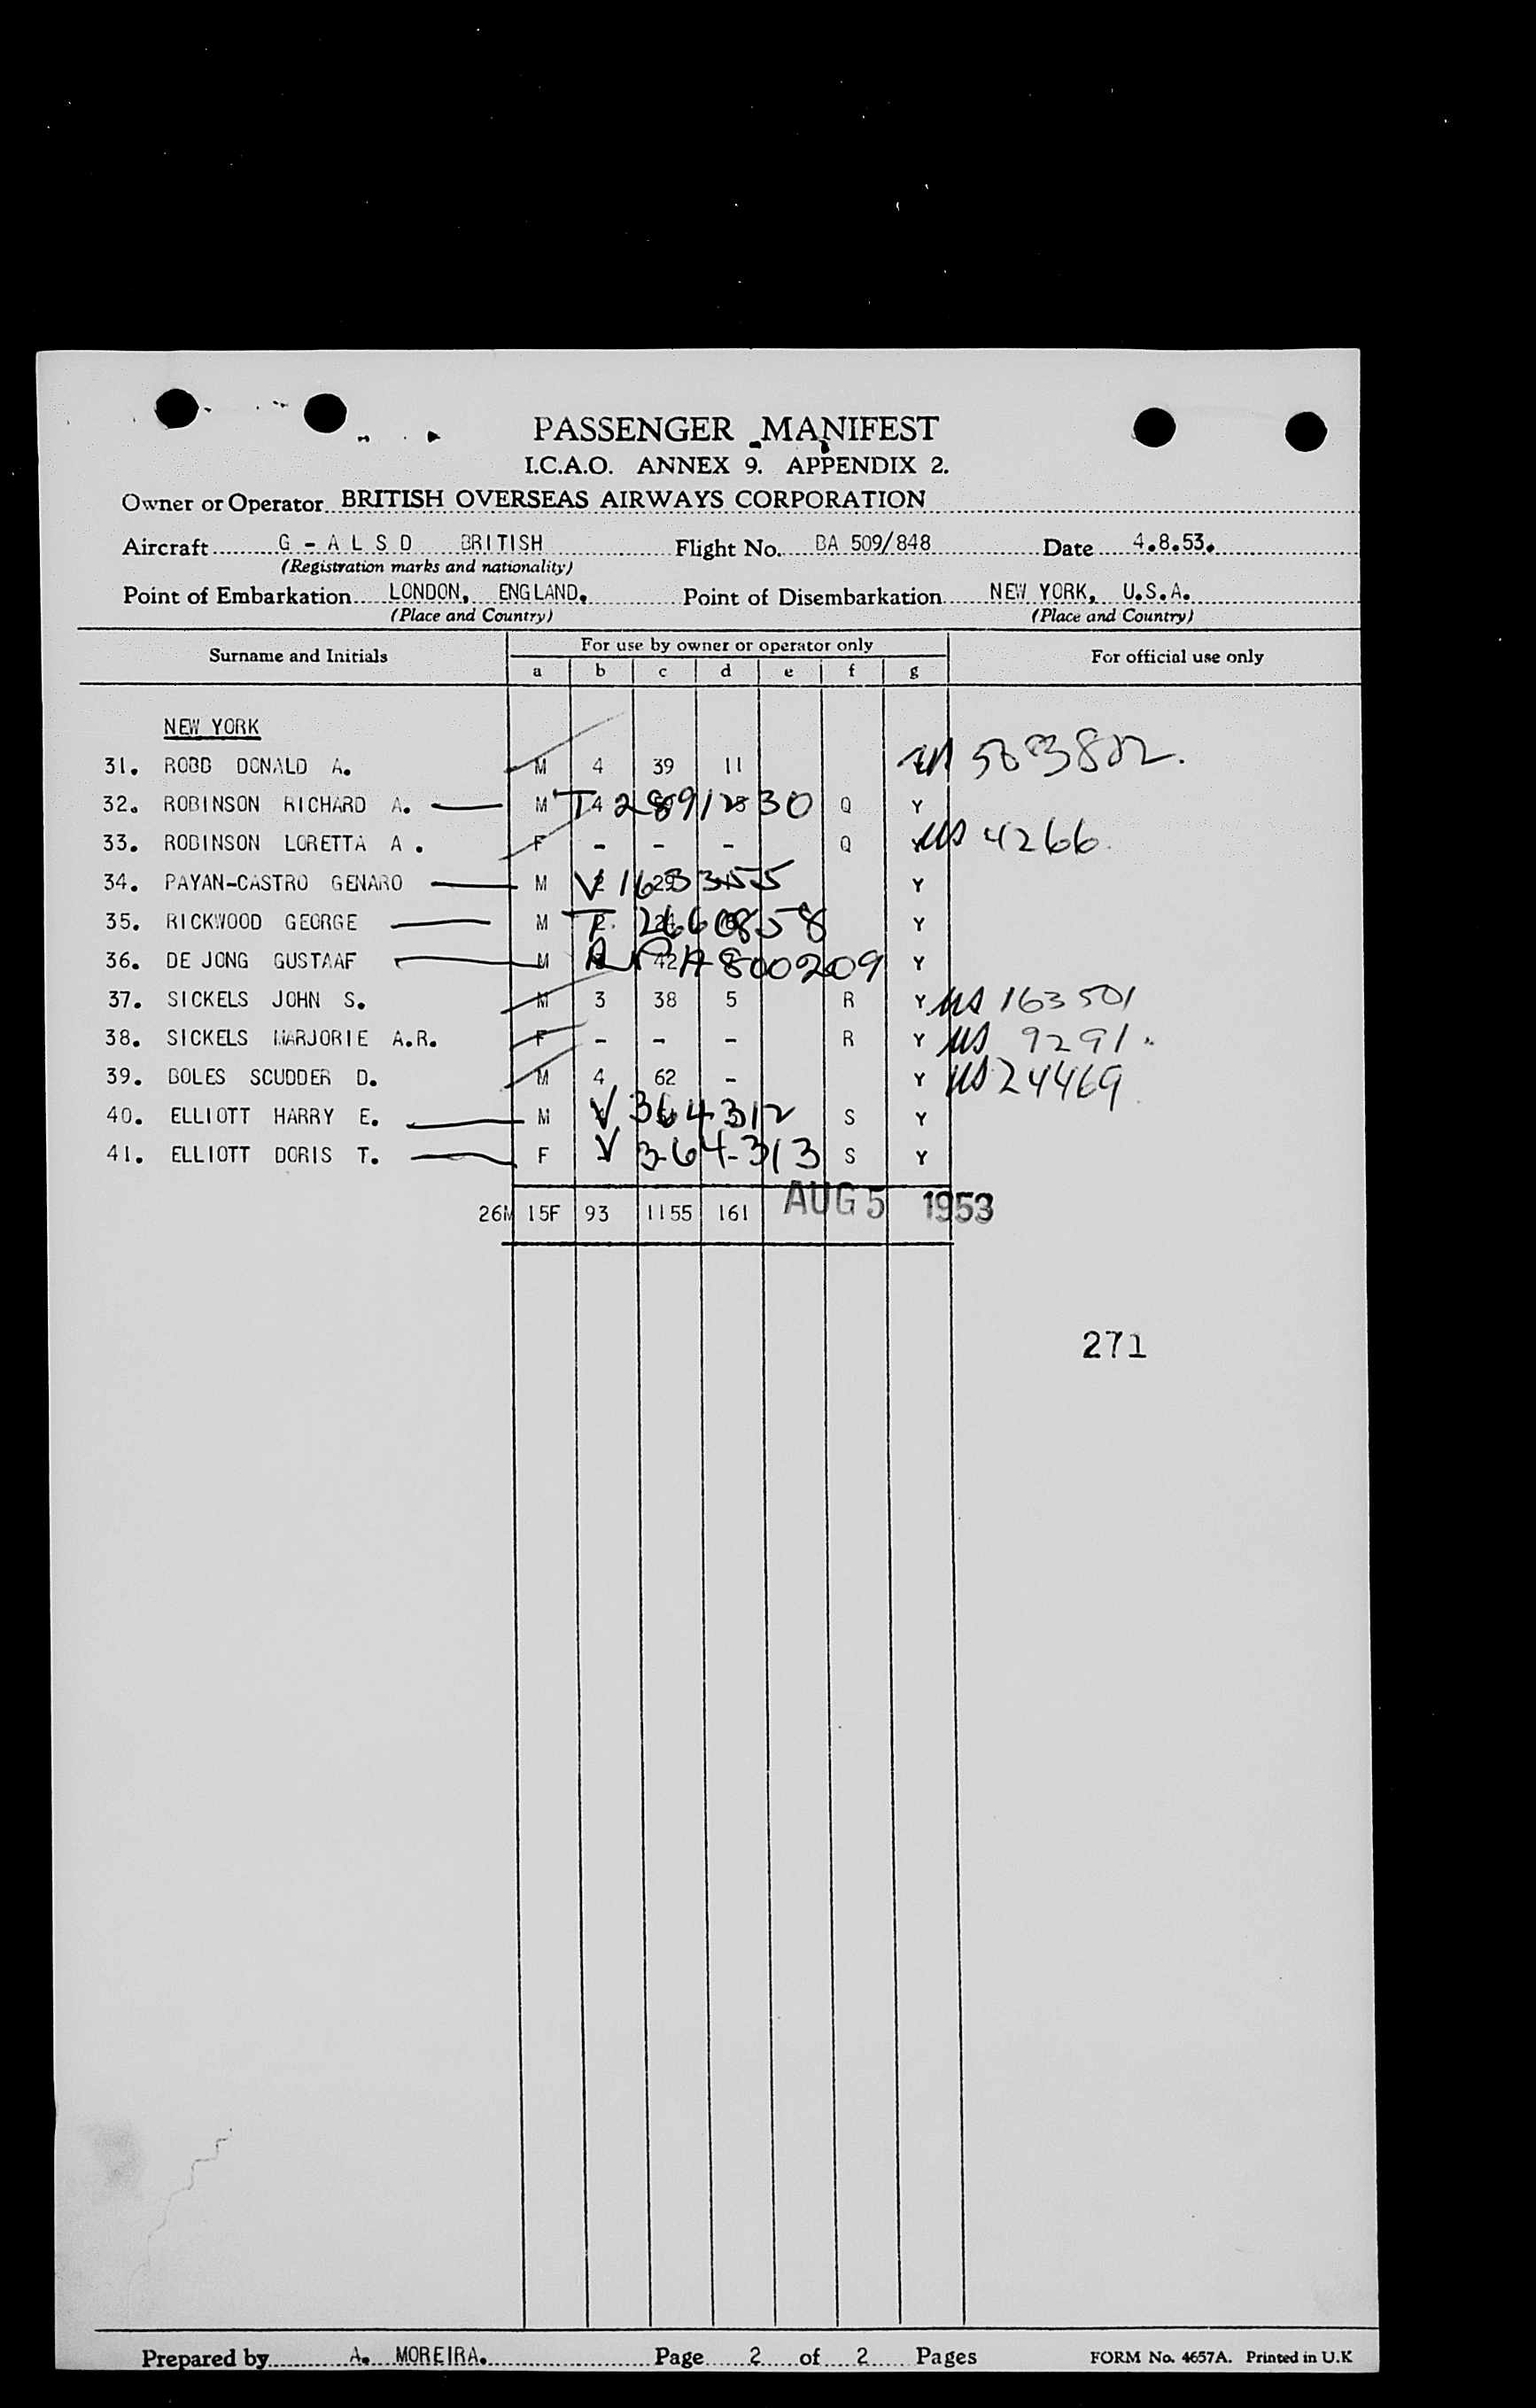 PASSENGER MANIFEST
I.C.A.O. ANNEX 9. APPENDIX 2.
Owner or Operator BRITISH OVERSEAS AIRWAYS CORPORATION
Aircraft G - A L S D BRITISH Flight No. BA 509/848 Date 4.8.53.
(Registration marks and nationality)
Point of Embarkation LONDON, ENGLAND. Point of Disembarkation NEW YORK, U.S.A.
(Place and Country) (Place and Country)
Surname and Initials For use by owner or operator only For official use only
a b c d e f g
NEW YORK
31. ROBB DONALD A. M 4 39 11
32. ROBINSON RICHARD A. M T 2891230 Q Y
33. ROBINSON LORETTA A. F - - - Q US 4266
34. PAYAN-CASTRO GENARO M V 1623355 Y
35. RICKWOOD GEORGE M T 2660858 Y
36. DE JONG GUSTAAF M 800209 Y
37. SICKELS JOHN S. M 3 38 5 R Y US 163501
38. SICKELS MARJORIE A.R. F - - - R Y US 9291
39. BOLES SCUDDER D. M 4 62 - Y US 24469
40. ELLIOTT HARRY E. M V 364312 S Y
41. ELLIOTT DORIS T. F V 364313 S Y
26M 15F 93 1155 161 AUG 5 1953
271
Prepared by A. MOREIRA. Page 2 of 2 Pages FORM No. 4657A. Printed in U.K